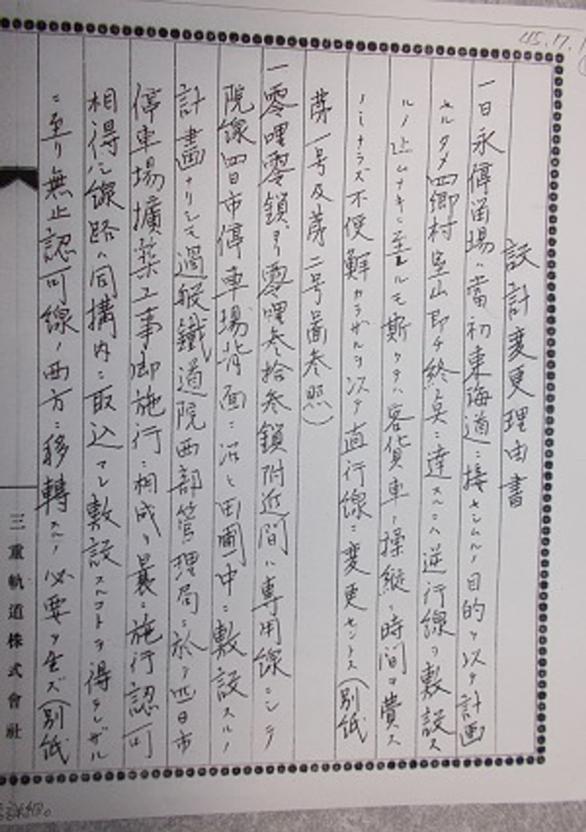 45.7.1
設計変更理由書
一日永停留場ハ當初東海道ニ接セシムルノ目的ヲ以テ計画
セルタメ四郷村室山即チ終点ニ達スルニハ逆行線ヲ敷設ス
ルノ止ムナキニ至レルモ斯クテハ客貨車ノ操縦ニ時間ヲ費ス
ノミナラズ不便鮮カラザルヲ以テ直行線ニ変更セントス(別紙
第一号及第二号圖参照)
一零哩零鎖ヨリ零哩参拾参鎖附近間ハ専用線ニシテ
院線四日市停車場背面ニ沿ヒ田圃中ニ敷設スルノ
計畫ナリシモ過般鐵道院西部管理局ニ於テ四日市
停車場擴築工事御施行ニ相成リ曩ニ施行認可
相得タル線路ハ同構内ニ取込マレ敷設スルコトヲ得ザル
ニ至リ無止認可線ノ西方ニ移轉スルノ必要ヲ生ズ(別紙
三重軌道株式會社